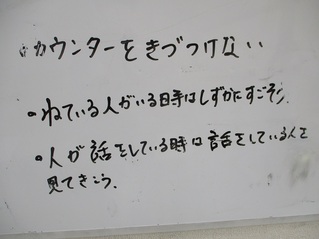 ・カウンターをきづつけない
・ねている人がいる時はしずかにすごそう.
・人が話をしている時は話をしている人を
見てきこう.